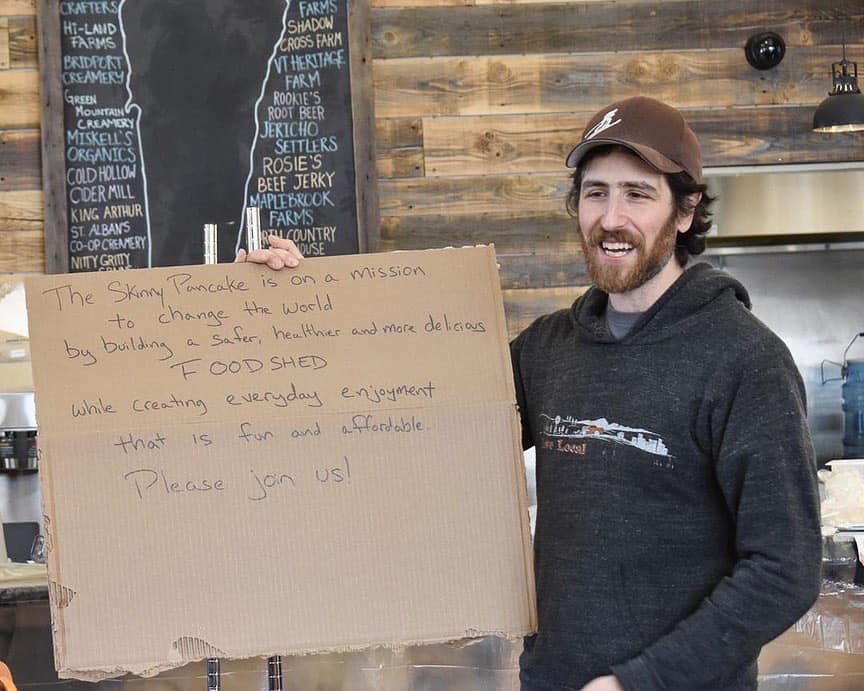 CRAFTERS
HI-LAND
FARMS
BRIDPORT
CREAMERY
GREEN
MOUNTAIN
CREAMERY
MISKELL'S
ORGANICS
COLD HOLLOW
CIDER MILL
KING ARTHUR
ST. ALBANS
CO-OP CREAMERY
NITTY GRITTY
FARMS
SHADOW
CROSS FARM
VT HERITAGE
FARM
ROOKIE'S
ROOT BEER
JERICHO
SETTLERS
ROSIE'S
BEEF JERKY
MAPLEBROOK
FARMS
COUNTRY
The Skinny Pancake is on a mission
to change the world
by building a safer, healthier and more delicious
FOODSHED
while creating everyday enjoyment
that is fun and affordable.
Please join us!
Local